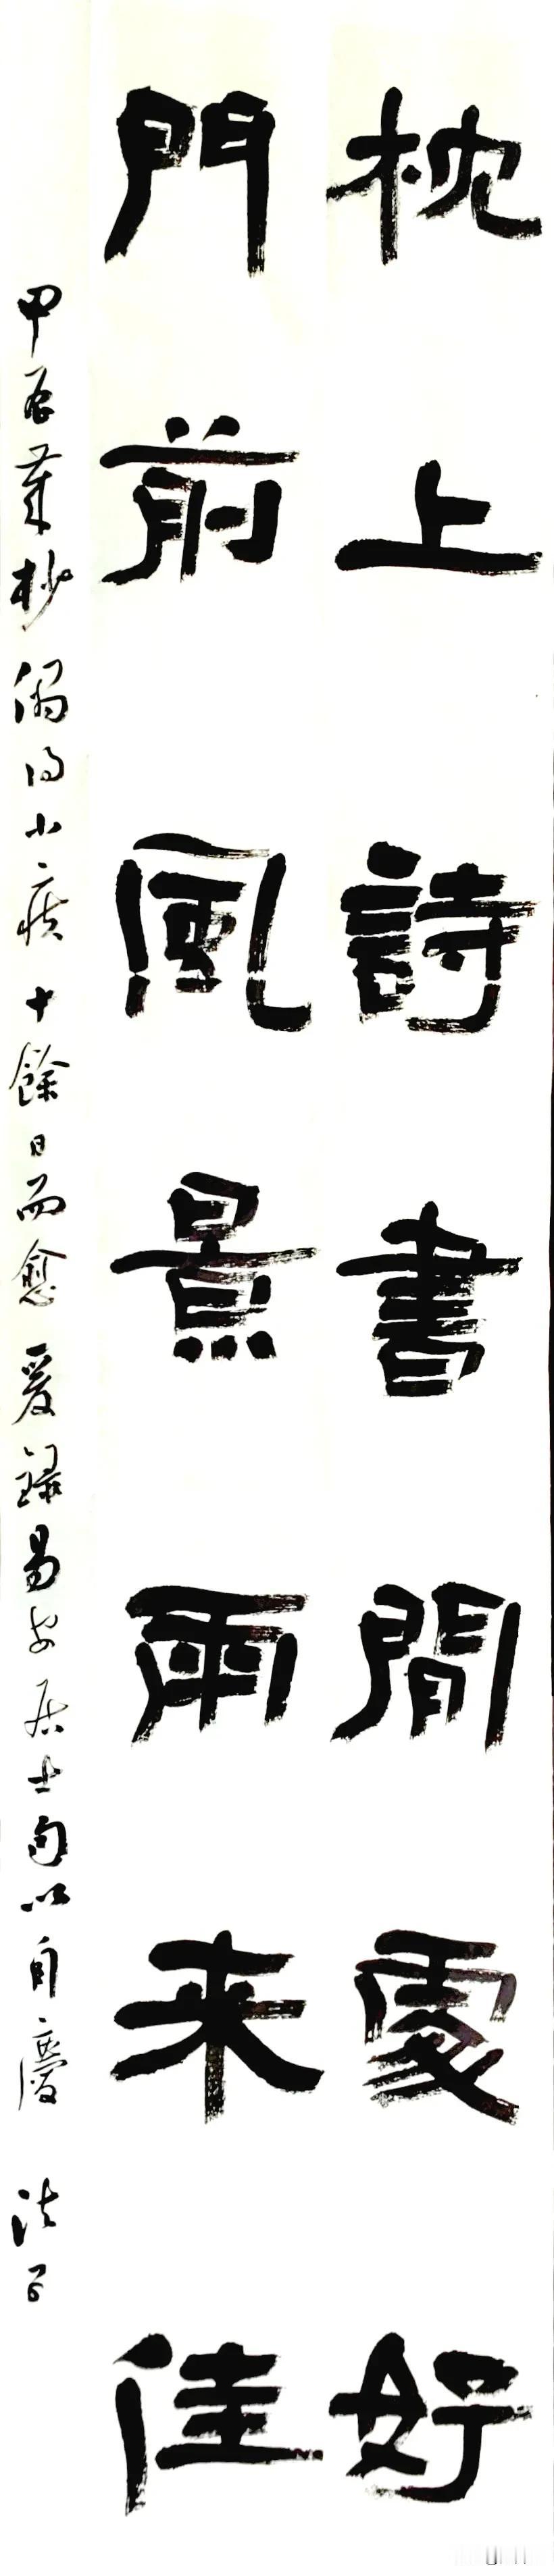 枕上詩書閒處好
門前風景雨来佳
甲辰葉杪偶得小疾十餘日而愈爰録易安居士句以自慶